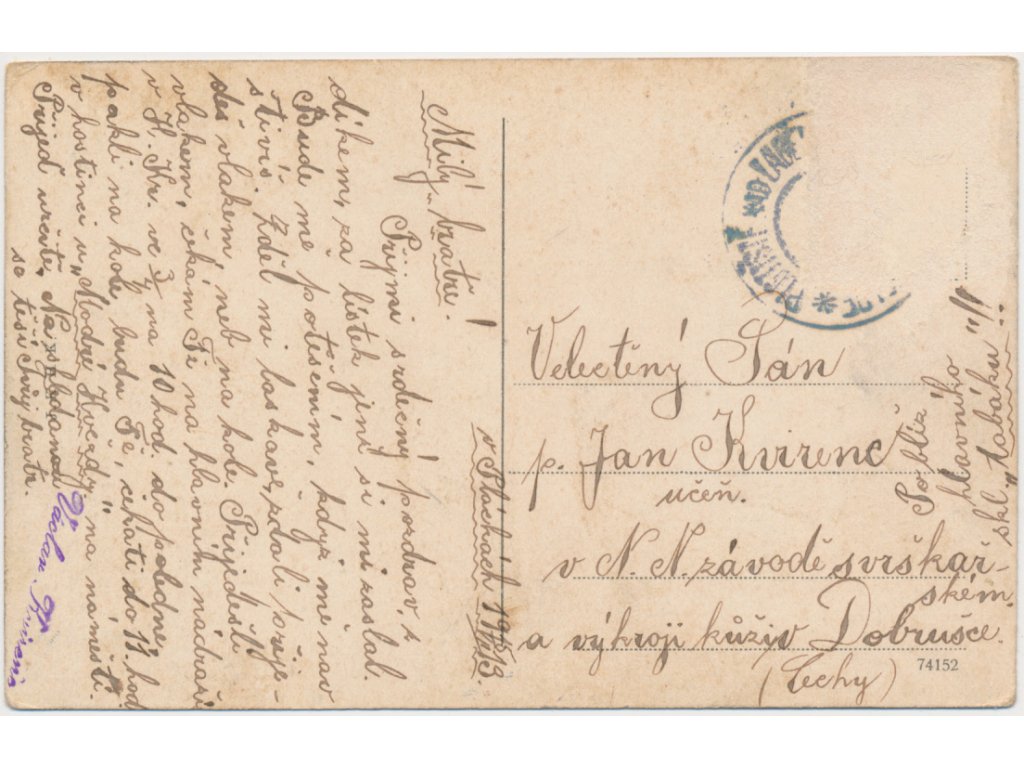 Milý bratře!
Přijmi srdečný pozdrav, s
díkem, za lístek jenž si mi zaslal.
Bude mě potěšením, když mě nav
štíviš. Zděl mi laskavě, zdali přije-
deš vlakem neb na kole. Přijedeš li
vlakem, čekám Tě na hlavním nádraží
v H. Kr. ve 3/4 na 10 hod. do poledne,
pakli na kole budu Tě, čekati do 11 hod.
v hostinci u „Modré Hvězdy" na náměstí.
Přijeď určitě. Na shledanou
se těší Tvůj bratr.
Václav Kvirenc
v Pláckách
Velectěný Pán
p. Jan Kvirenc
učeň.
v N. N. závodě svrškař-
ském.
a výkroji kůží v Dobrušce.
(Čechy)
Poblíž
hlavního
skl. „tabáku"!!
PLOTIŠTĚ NAD LABE
74152